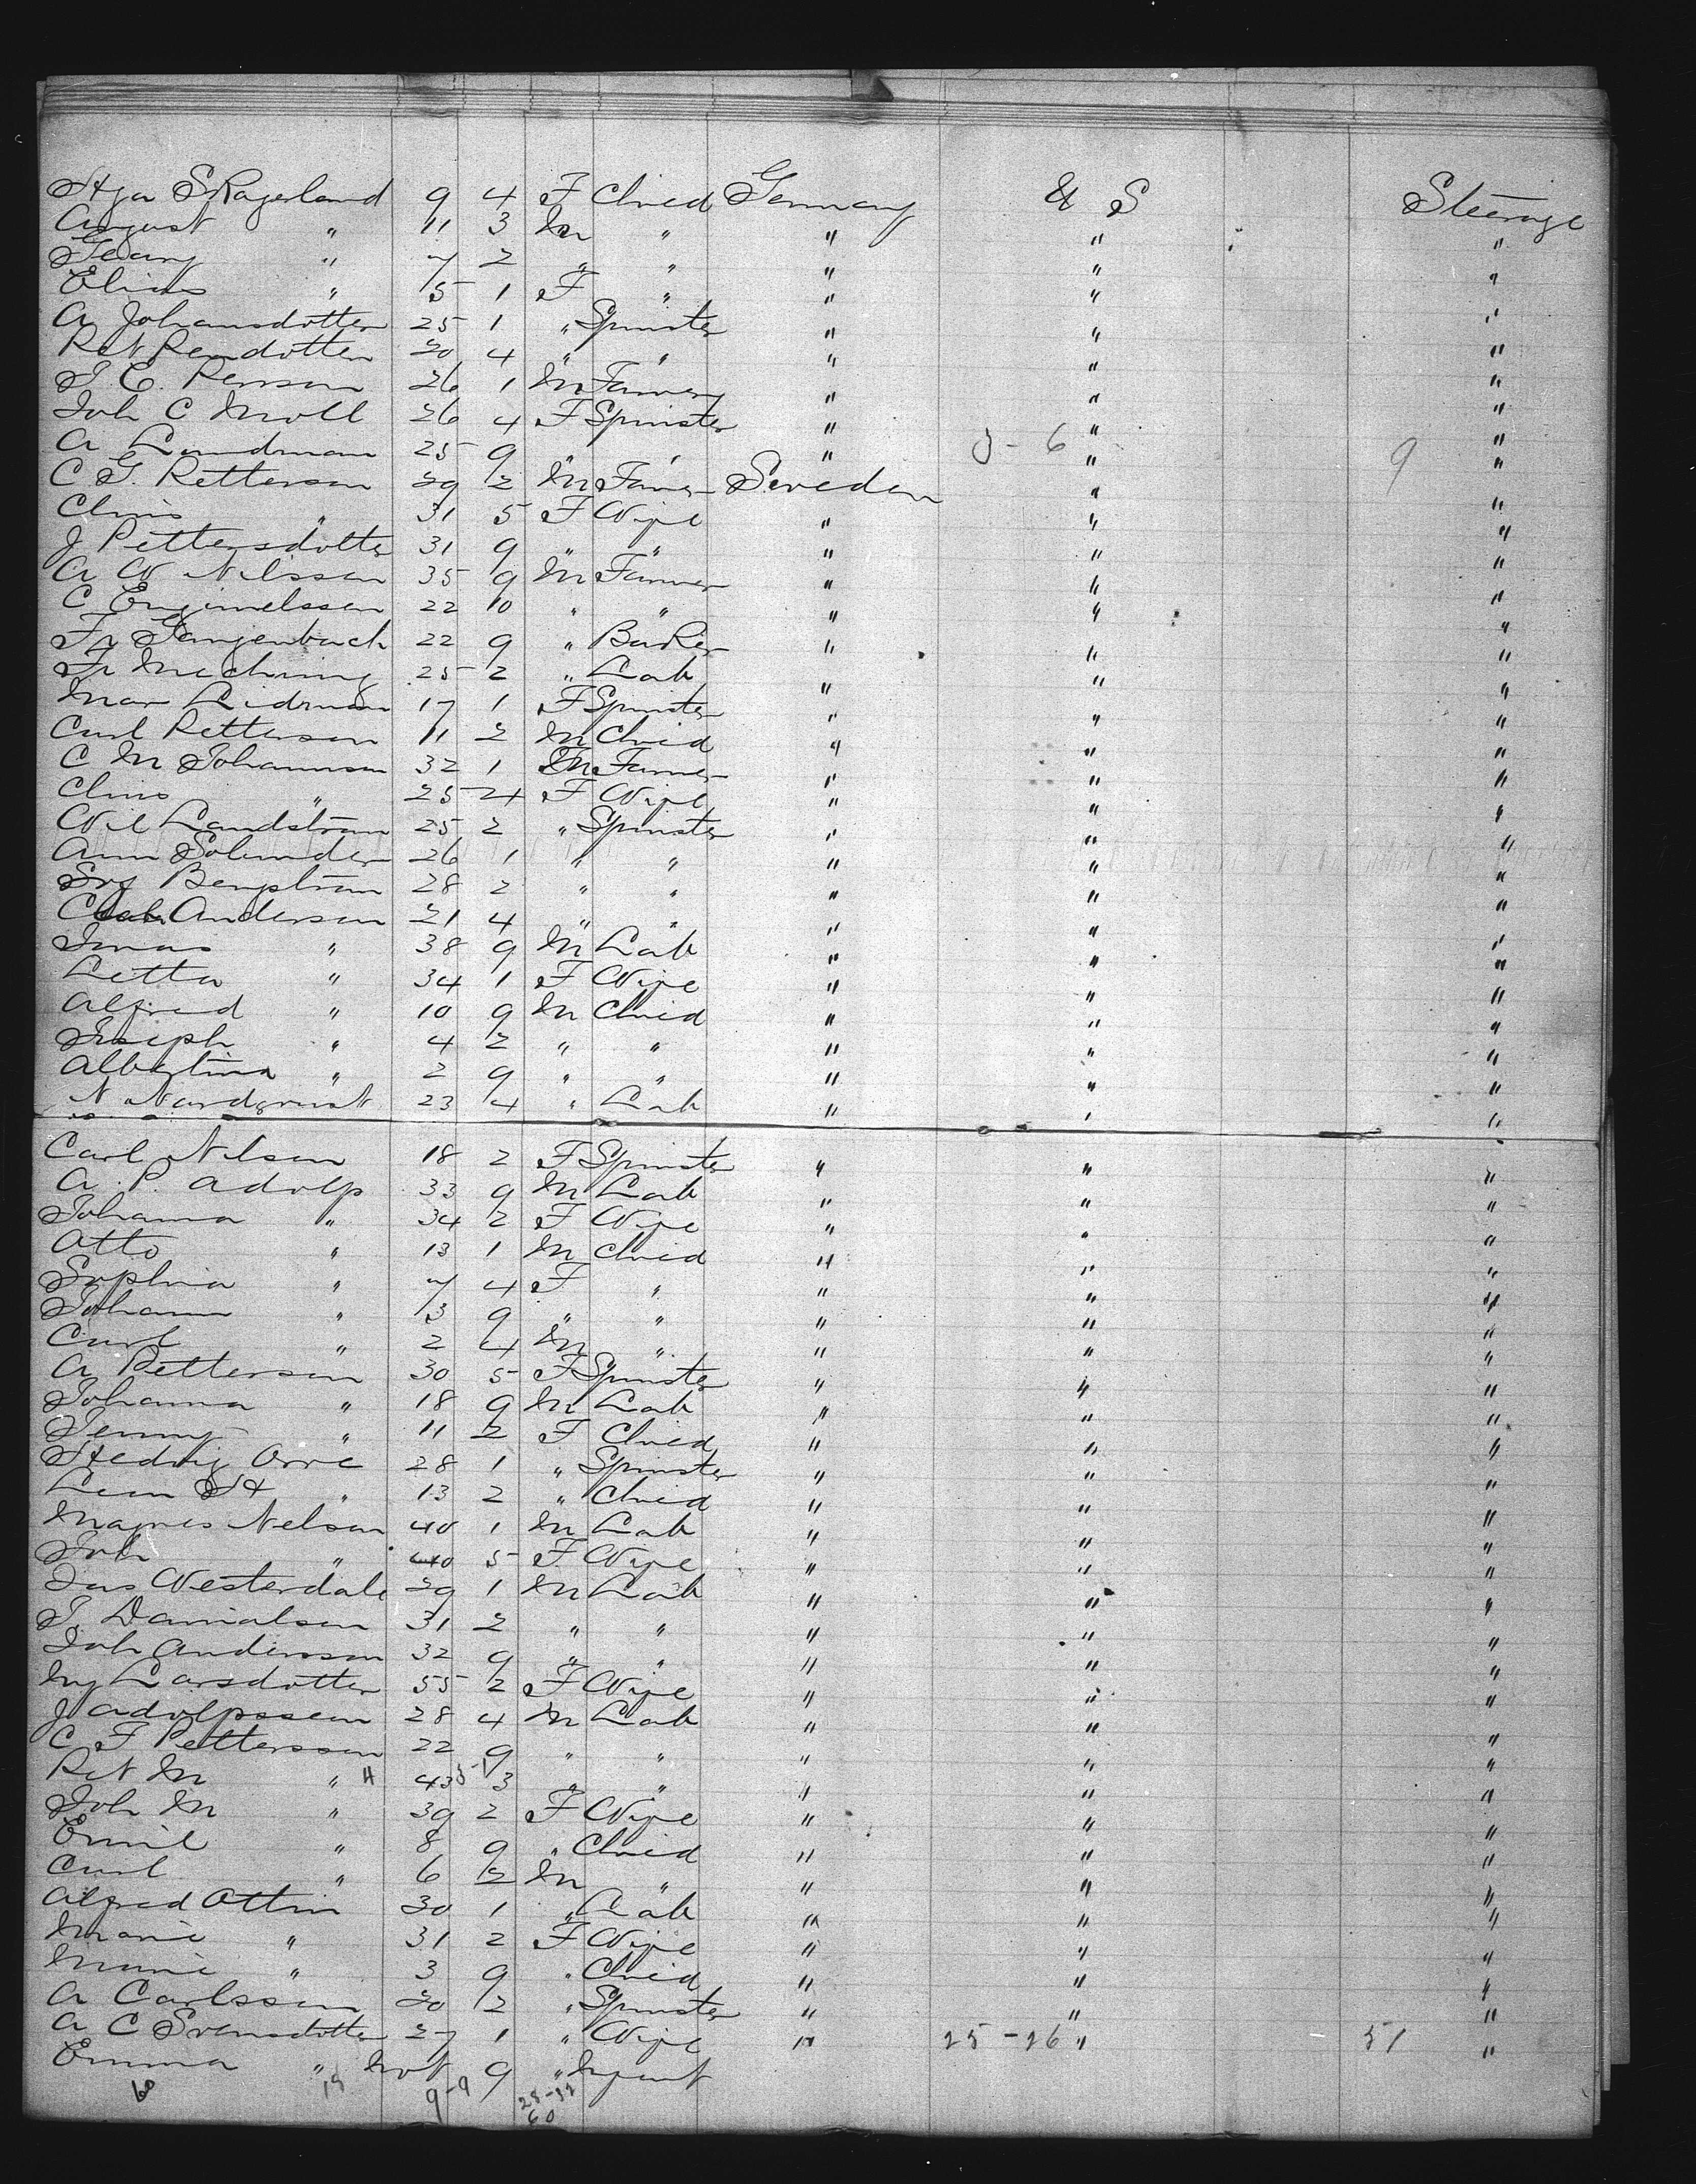 Hja Skagerland 9 4 F Chied Germany U S Steerage
August " 11 3 M " " " "
Geary " 7 2 " " " " "
Elias " 5 1 F " " " "
A Johansdotter 25 1 " Spinster " " "
Pet Rendotter 20 4 " " " " "
J. C. Person 26 1 M Farmer " " "
Joh C Moll 26 4 F Spinster " " "
A Lindman 25 9 " " " 3-6 " 9 "
C G. Petterson 29 2 M Farmer Sweden " "
Chris " 31 5 F Wife " " "
J Pettersdotter 31 9 " " " " "
A W Nilsson 35 9 M Farmer " " "
C Enginelssen 22 10 " " " " "
Fr Gangenbach 22 9 " Baker " " "
Fr Mechning 25 2 " Lab " " "
Mar Lidman 17 1 F Spinster " " "
Carl Petterson 11 2 M Chied " " "
C M Johannson 32 1 M Farmer " " "
Chris " 25 4 F Wife " " "
Wil Landstrom 25 2 " Spinster " " "
Ann Solunder 26 1 " " " " "
Sof Bengstrom 28 2 " " " " "
Anderson 21 4 " " " " "
Jonas " 38 9 M Lab " " "
Letta " 34 1 F Wife " " "
Alfred " 10 9 M Chied " " "
Joseph " 4 2 " " " " "
Albertina " 2 9 " " " " "
N Nordqvist 23 4 " Lab " " "
Carl Nilson 18 2 F Spinster " " "
A. P. Adolp 33 9 M Lab " " "
Johanna " 34 2 F Wife " " "
Otto " 13 1 M Chied " " "
Sophia " 7 4 F " " " "
Johann " 3 9 " " " " "
Carl " 2 4 M " " " "
A Petterson 30 5 F Spinster " " "
Johanna " 18 9 M Lab " " "
Jenny " 11 2 F Chied " " "
Hedvig Orre 28 1 " Spinster " " "
Leon H " 13 2 " Chied " " "
Magnes Nelson 40 1 M Lab " " "
Joh " 40 5 F Wife " " "
Jas Westerdale 29 1 M Lab " " "
J. Danialson 31 2 " " " " "
Joh Anderson 32 9 " " " " "
Ing Larsdotter 55 2 F Wife " " "
J Adolpssen 28 4 M Lab " " "
C F Petterson 22 9 " " " " "
Pet M " H 43 3 " " " " "
Joh M " 39 2 F Wife " " "
Emil " 8 9 " Chied " " "
Carl " 6 2 M " " " "
Alfred Ottin 30 1 " Lab " " "
Marie " 31 2 F Wife " " "
Marie " 3 9 " Chied " " "
A Carlsson 20 2 " Spinster " " "
A C Svensdotter 27 1 " Wife " 25-26 " 51 "
Emma " 9 " Infant
60 9-9 60